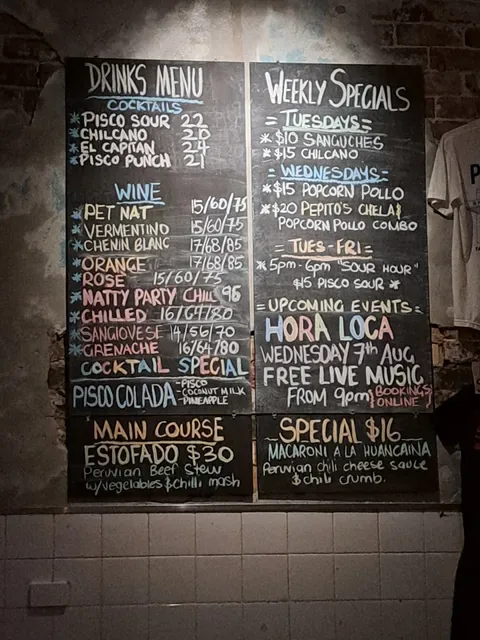 DRINKS MENU
COCKTAILS
PISCO SOUR 22
CHILCANO 20
EL CAPITAN 24
PISCO PUNCH 21
WINE
PET NAT 15/60/75
VERMENTINO 15/60/75
CHENIN BLANC 17/68/85
ORANGE 17/68/85
ROSE 15/60/75
NATTY PARTY CHILL 96
CHILLED 16/64/80
SANGIOVESE 14/56/70
GRENACHE 16/64/80
COCKTAIL SPECIAL
PISCO COLADA -PISCO
-COCONUT MILK
-PINEAPPLE
MAIN COURSE
ESTOFADO $30
Peruvian Beef Stew
w/vegetables & chilli mash
WEEKLY SPECIALS
= TUESDAYS =
$10 SANGUCHES
$15 CHILCANO
= WEDNESDAYS =
$15 POPCORN POLLO
$20 PEPITO'S CHELA &
POPCORN POLLO COMBO
= TUES - FRI =
5pm - 6pm "SOUR HOUR"
$15 PISCO SOUR
= UPCOMING EVENTS =
HORA LOCA
WEDNESDAY 7th AUG
FREE LIVE MUSIC
FROM 9pm BOOKINGS
ONLINE
SPECIAL $16
MACARONI A LA HUANCAINA
Peruvian chili cheese sauce
& chili crumb.